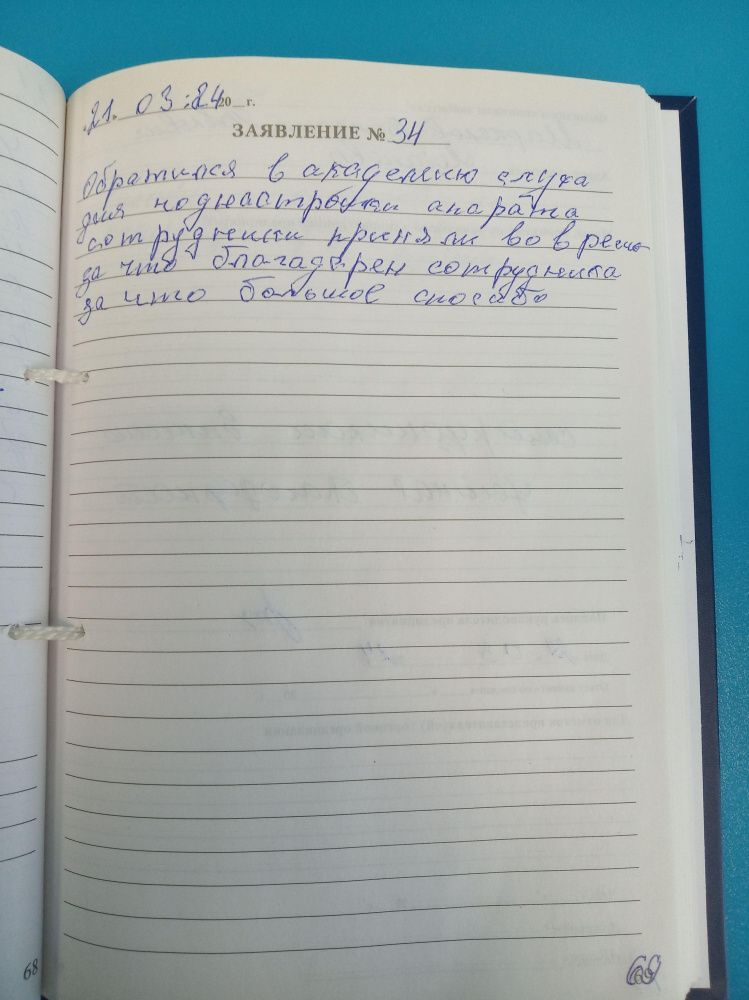 21. 03 :24 20__ г.
ЗАЯВЛЕНИЕ № 34
Обратился в академию слуха
для поднастройки апарата
сотрудники приняли во время
за что благадорен сотрудника
за что большое спосибо
68
69